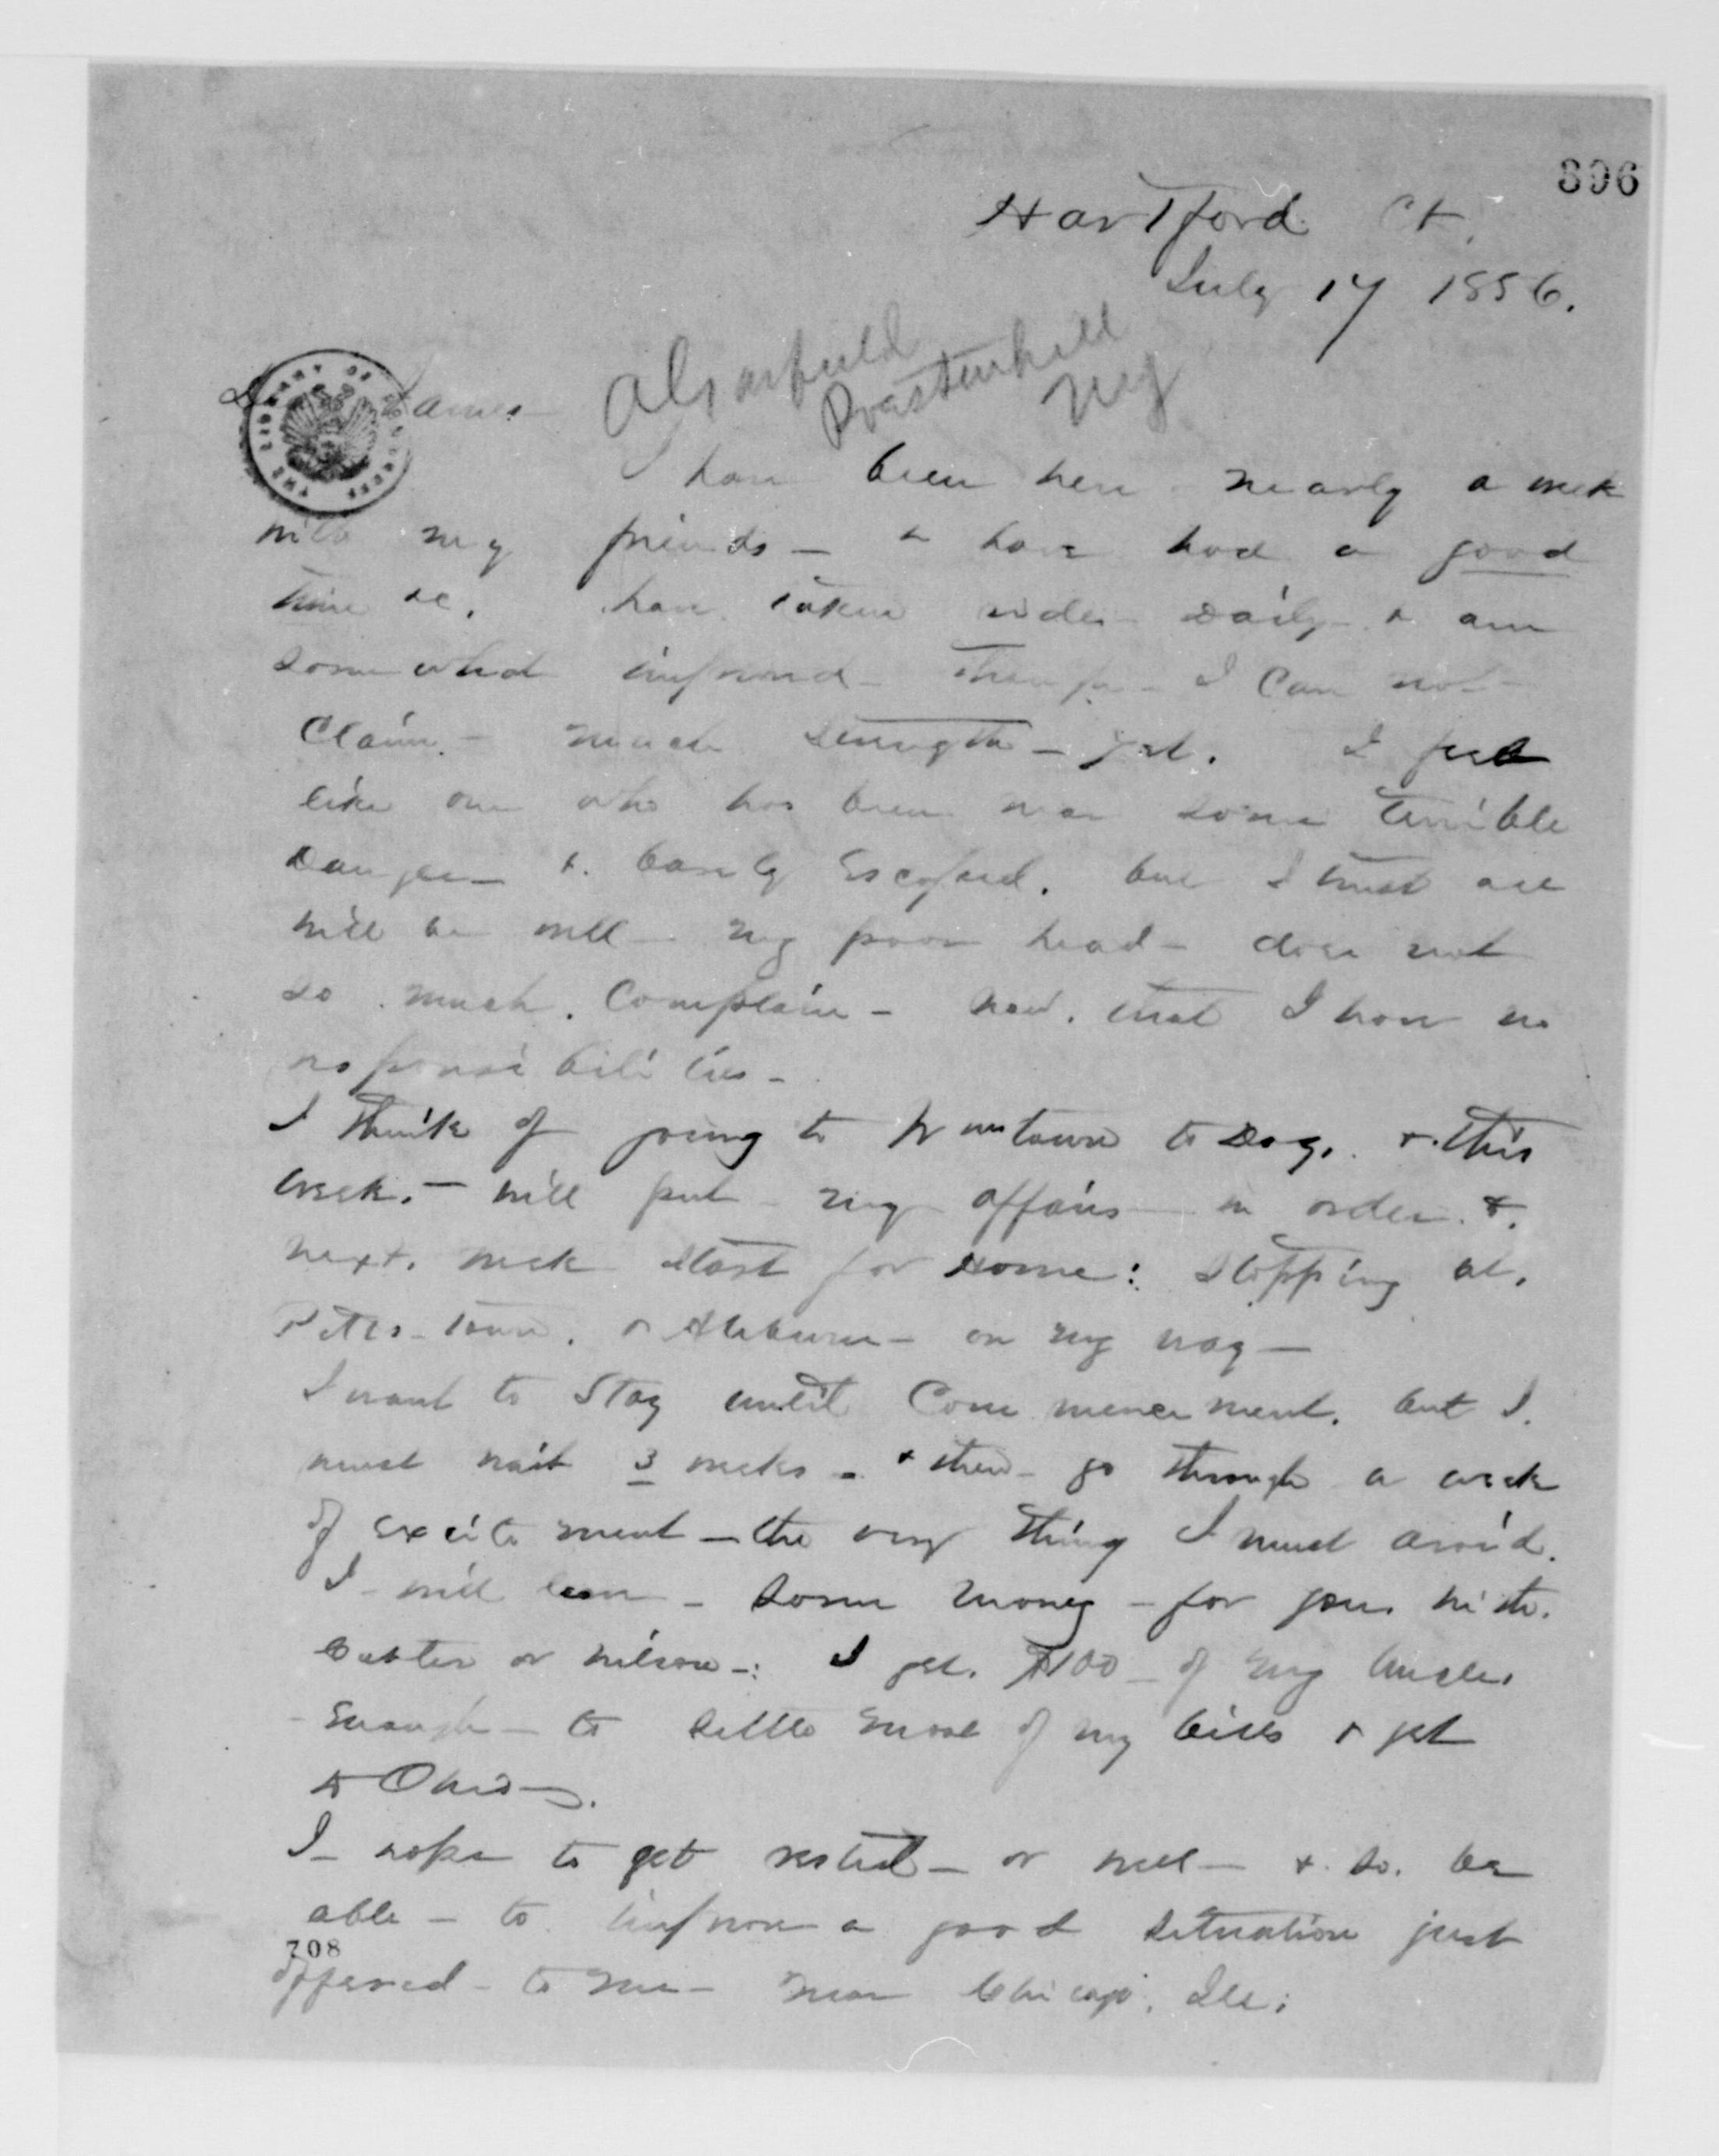 396
Hartford Ct.
July 17 1856.
James
Poestenkill
NY
I have been here nearly a week
with my friends — & have had a good
time &c. have taken rides daily & am
somewhat improved — though — I can not
claim — much strength — yet. I feel
like one who has been near some terrible
danger — & barely escaped. but I trust all
will be well — my poor head — does not
so much complain — now that I have no
responsibilities —
I think of going to Wmstown to day, & this
week. — will put my affairs in order &
next week start for Home: stopping at
Peters-town. & Auburn — on my way —
I want to stay until Commencement. but I
must wait 3 weeks — & then go through a week
of excitement — the very thing I must avoid.
I will leave — some money — for you with
or Wilson —: I get $100 — of my Uncle.
enough — to settle most of my bills & get
to Ohio —.
I hope to get rested — or well — & so. be
able — to improve a good situation just
offered — to me — near Chicago, Ill;
708
THE LIBRARY OF CONGRESS